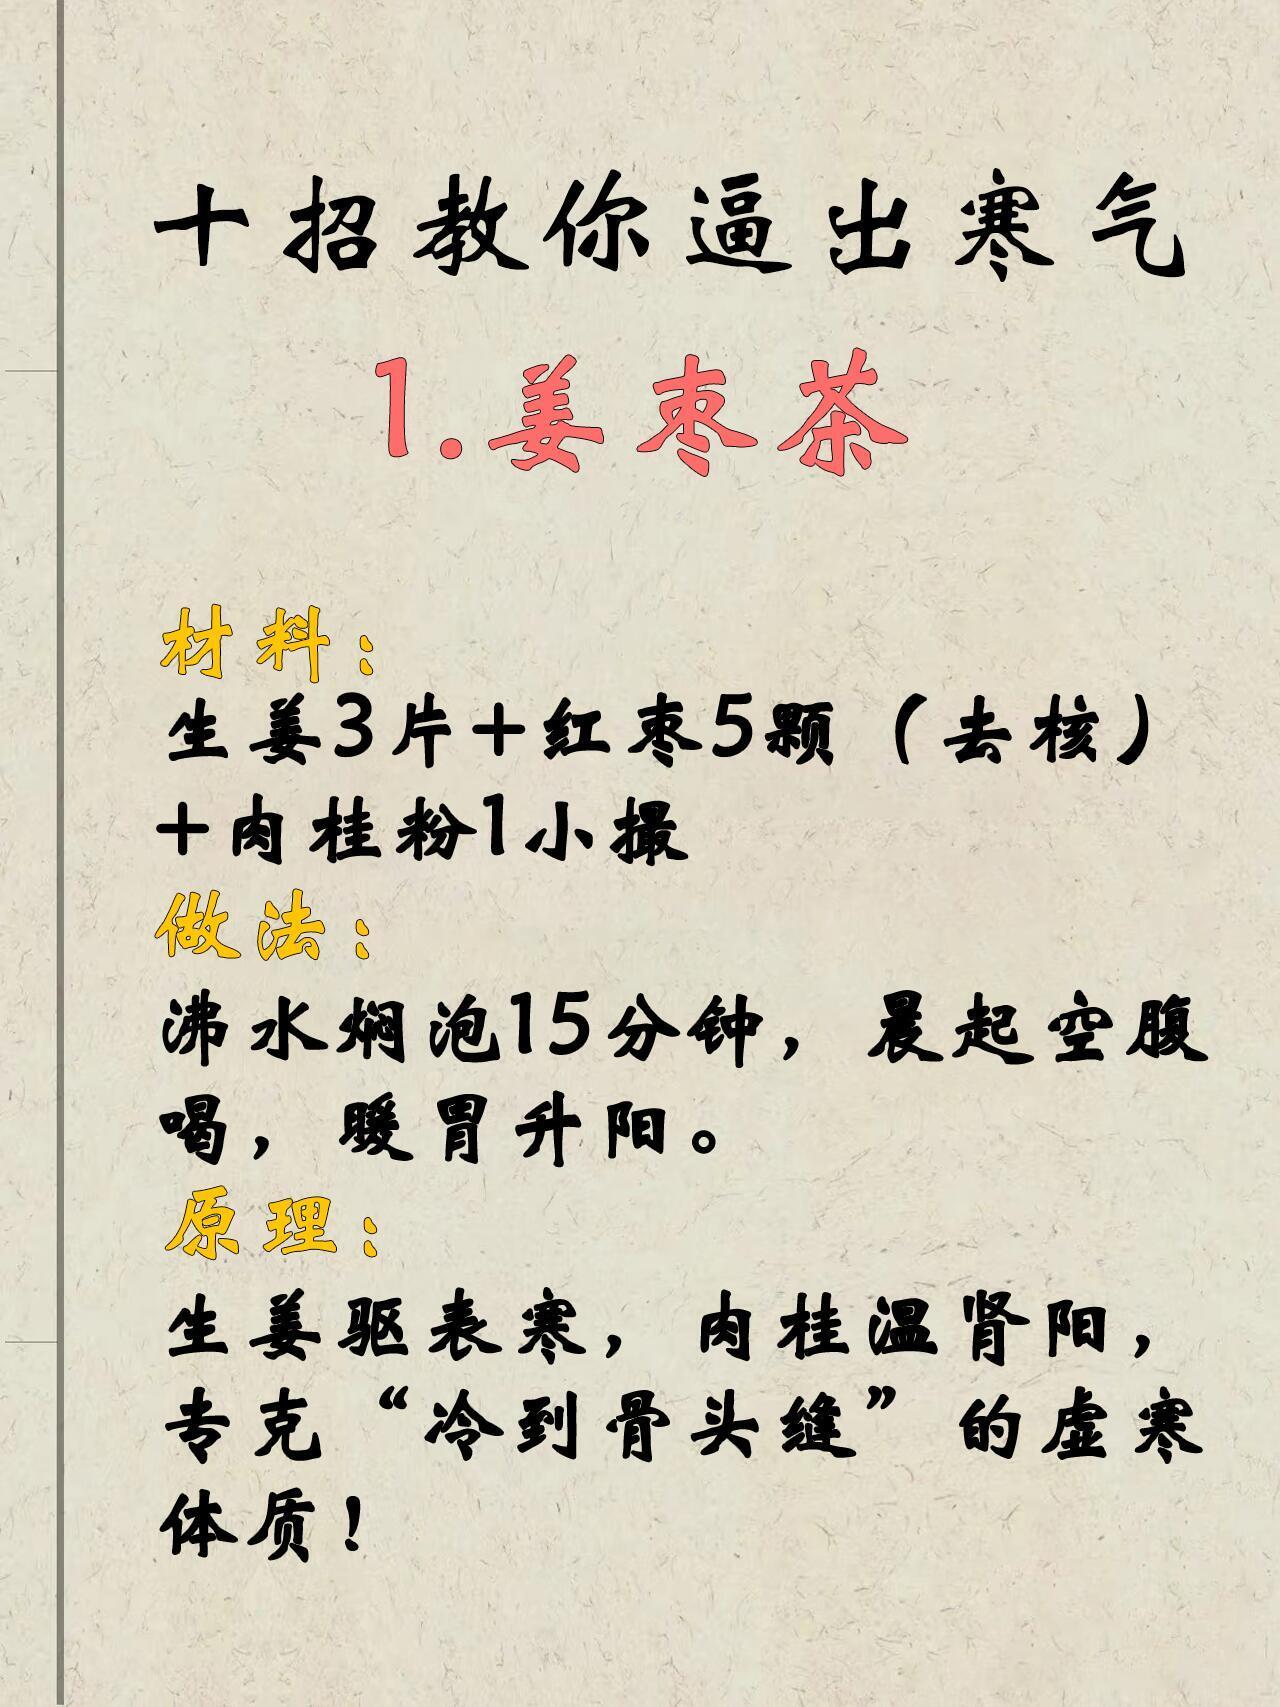 十招教你逼出寒气
1.姜枣茶
材料：
生姜3片+红枣5颗（去核）
+肉桂粉1小撮
做法：
沸水焖泡15分钟，晨起空腹
喝，暖胃升阳。
原理：
生姜驱表寒，肉桂温肾阳，
专克“冷到骨头缝”的虚寒
体质！